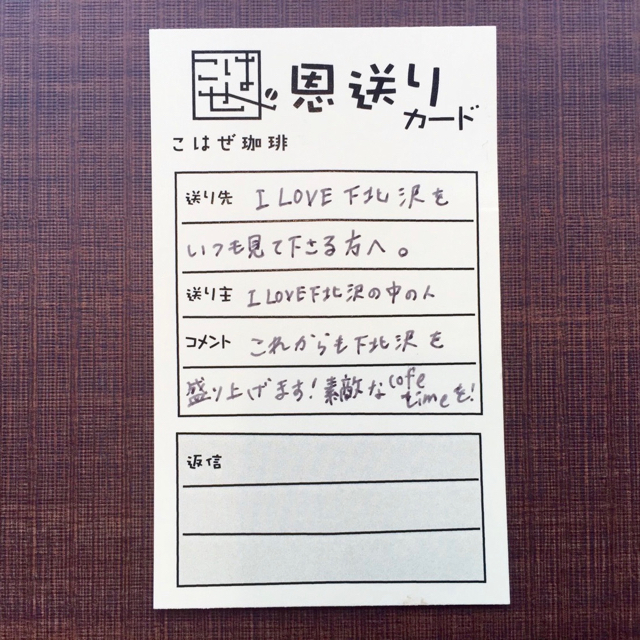 こはぜ
恩送り
カード
こはぜ珈琲
送り先 I LOVE 下北沢を
いつも見て下さる方へ。
送り主 I LOVE下北沢の中の人
コメント これからも下北沢を
盛り上げます!素敵なcofe timeを!
返信